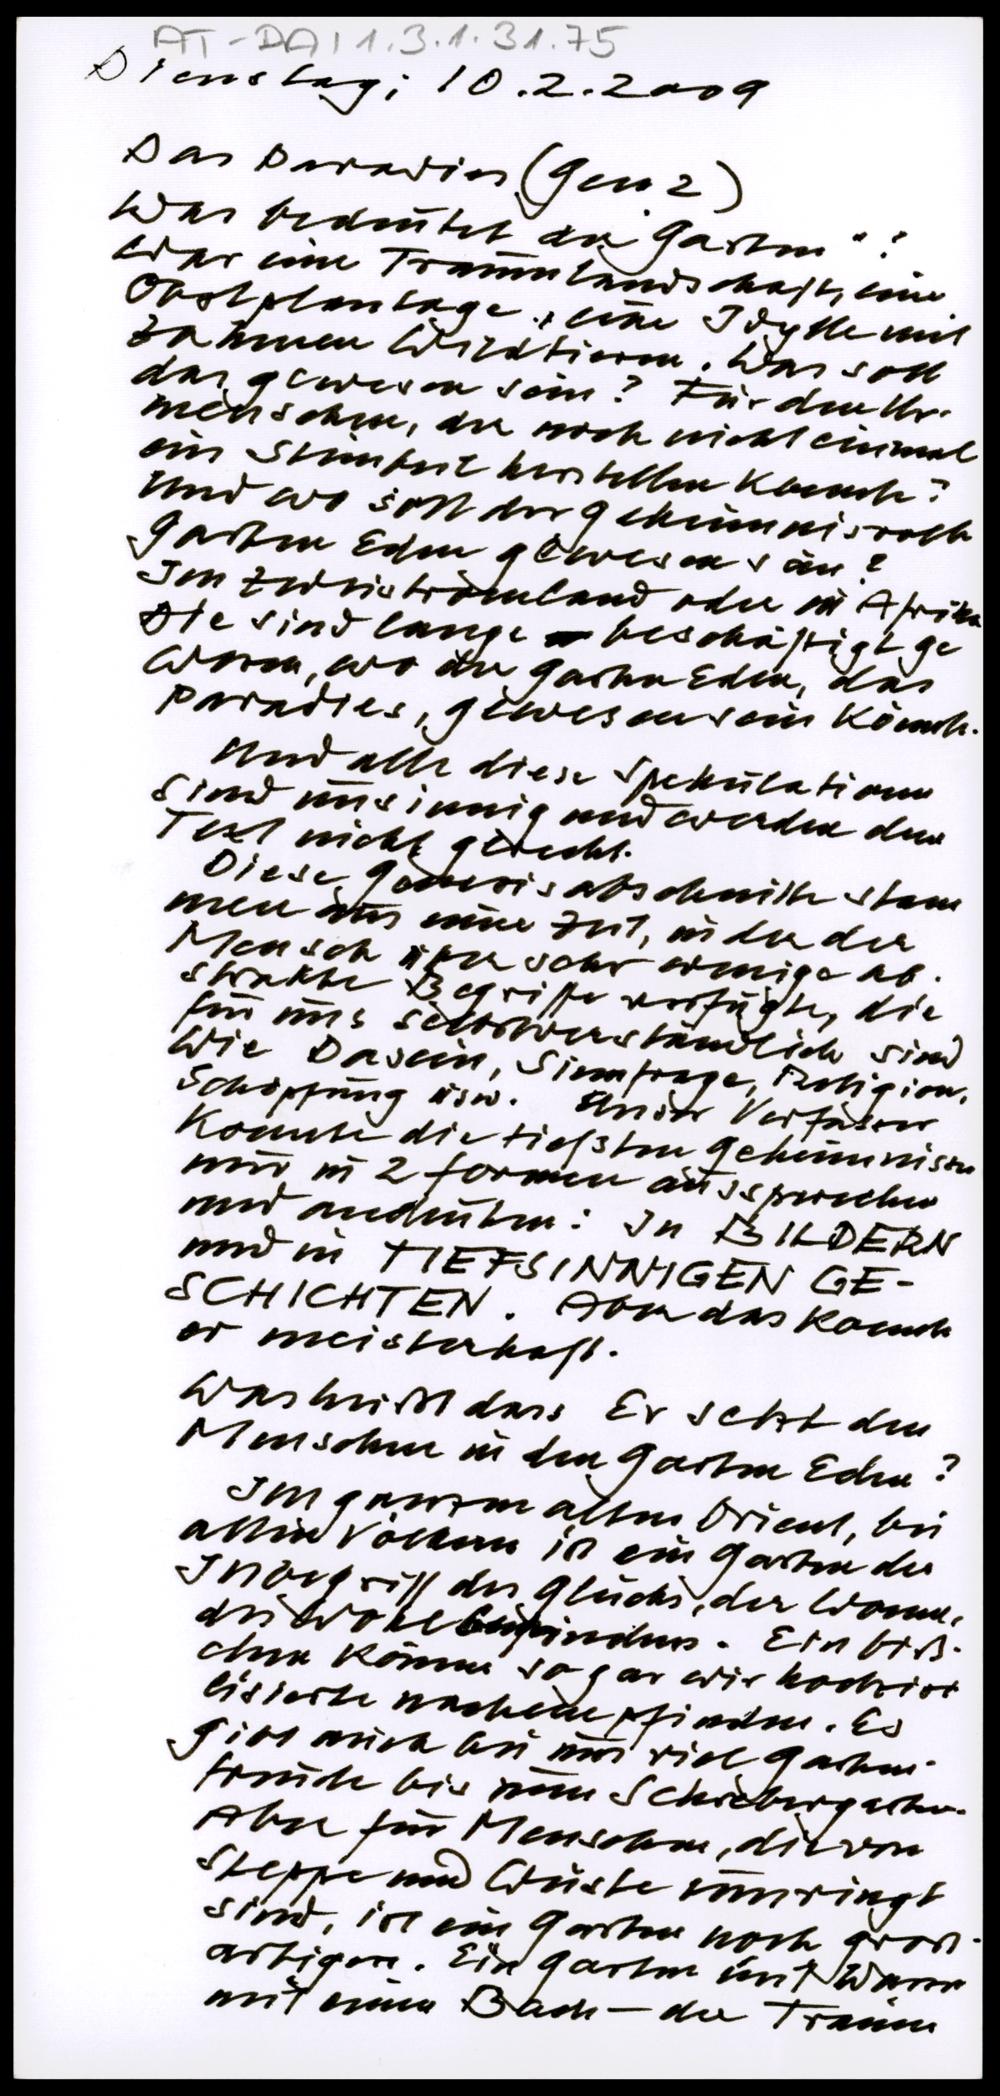 AT-DAI 1.3.1.31.75
Dienstag; 10.2.2009
Das Paradies (Gen 2)
Was bedeutet der "Garten"?
War eine Traumlandschaft, eine
Obstplantage, eine Idylle mit
zahmen Wildtieren. Was soll
das gewesen sein? Für den Ur-
menschen, der noch nicht einmal
ein Steinbeil herstellen konnte?
Und wo soll der geheimnisvolle
Garten Eden gewesen sein?
Im Zweistromland oder in Afrika
Die sind lange beschäftigt ge
wesen, wo der Garten Eden, das
Paradies, gewesen sein könnte.
Und alle diese Spekulationen
sind unsinnig und werden dem
Text nicht gerecht.
Diese Genesisabschnitte stam
men aus einer Zeit, in der der
Mensch über sehr wenige ab-
strakte Begriffe verfügte, die
für uns selbstverständlich sind
Wie Dasein, Sinnfrage, Religion,
Schöpfung usw. Unser Verfasser
konnte die tiefsten Geheimnisse
nur in 2 Formen aussprechen
und andeuten: In BILDERN
und in TIEFSINNIGEN GE-
SCHICHTEN. Aber das konnte
er meisterhaft.
Was heißt dass Er setzt den
Menschen in den Garten Eden?
Im ganzen alten Orient, bei
allen Völkern ist ein Garten der
Inbegriff des Glücks, der Wonne,
des Wohlbefindens. Ein biß-
chen können sogar wir hochzivi
lisierte nachempfinden. Es
gibt auch bei uns viel Garten-
freude bis zum Schrebergarten.
Aber für Menschen, die von
Steppe und Wüste umringt
sind, ist ein Garten noch groß-
artiger. Ein Garten mit Wasser
mit einem Bach – der Traum